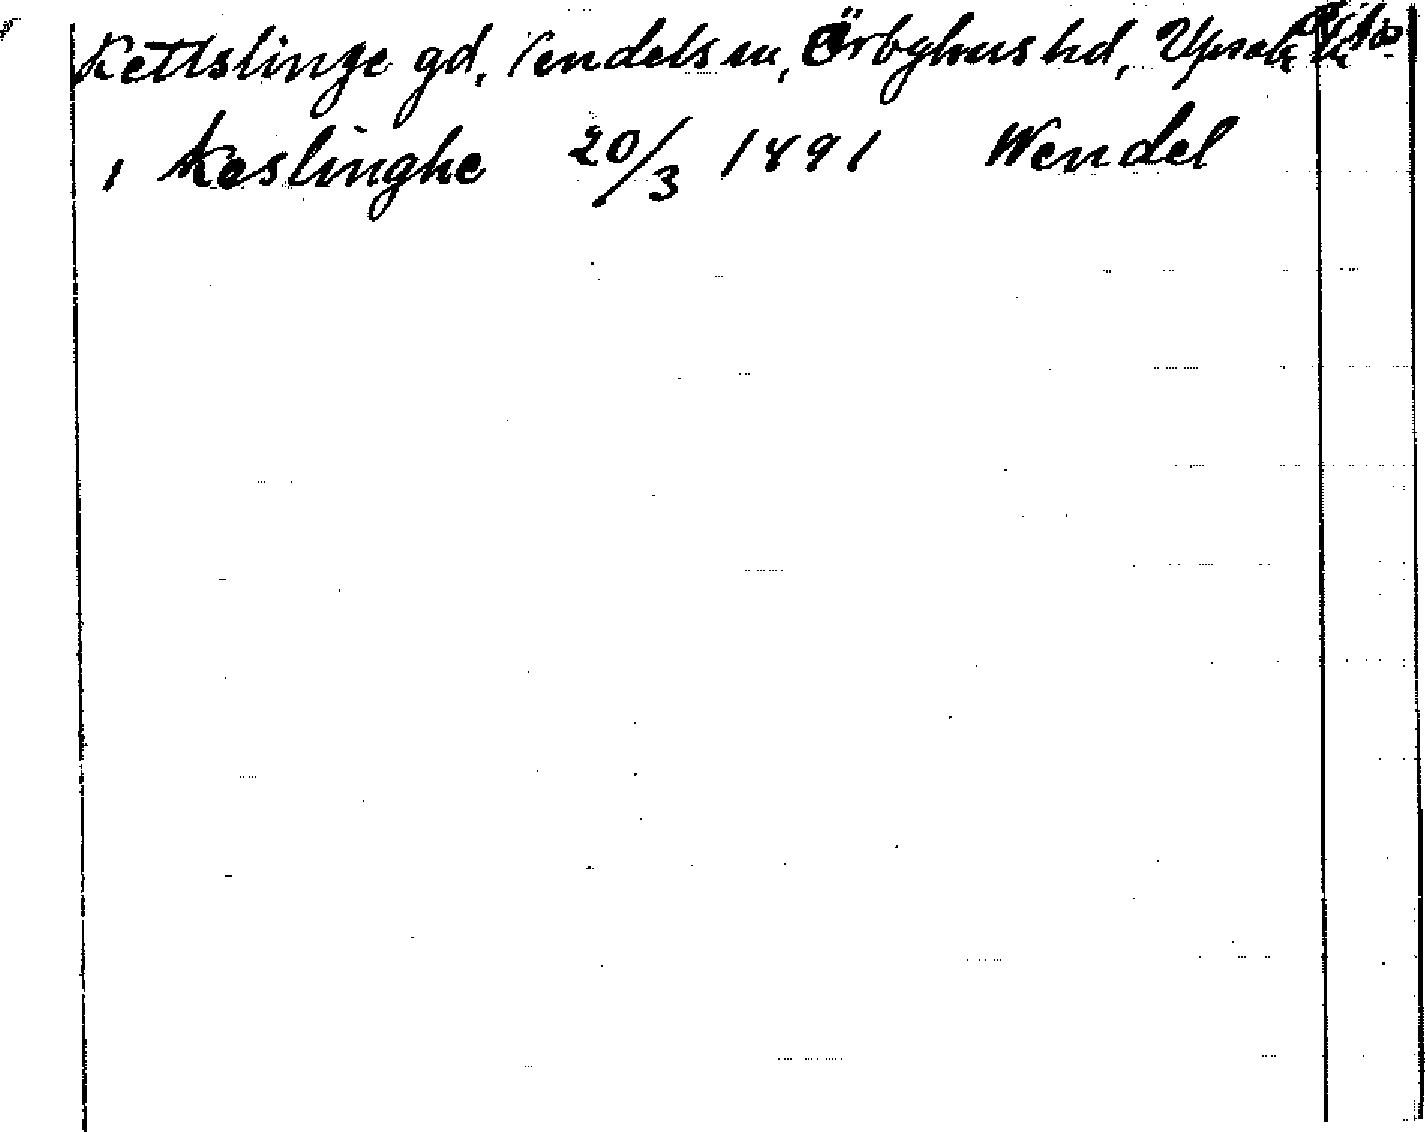 Kettslinge gd, Vendels sn, Örbyhus hd, Upsala
i Keslinghe 20/3 1491 Wendel